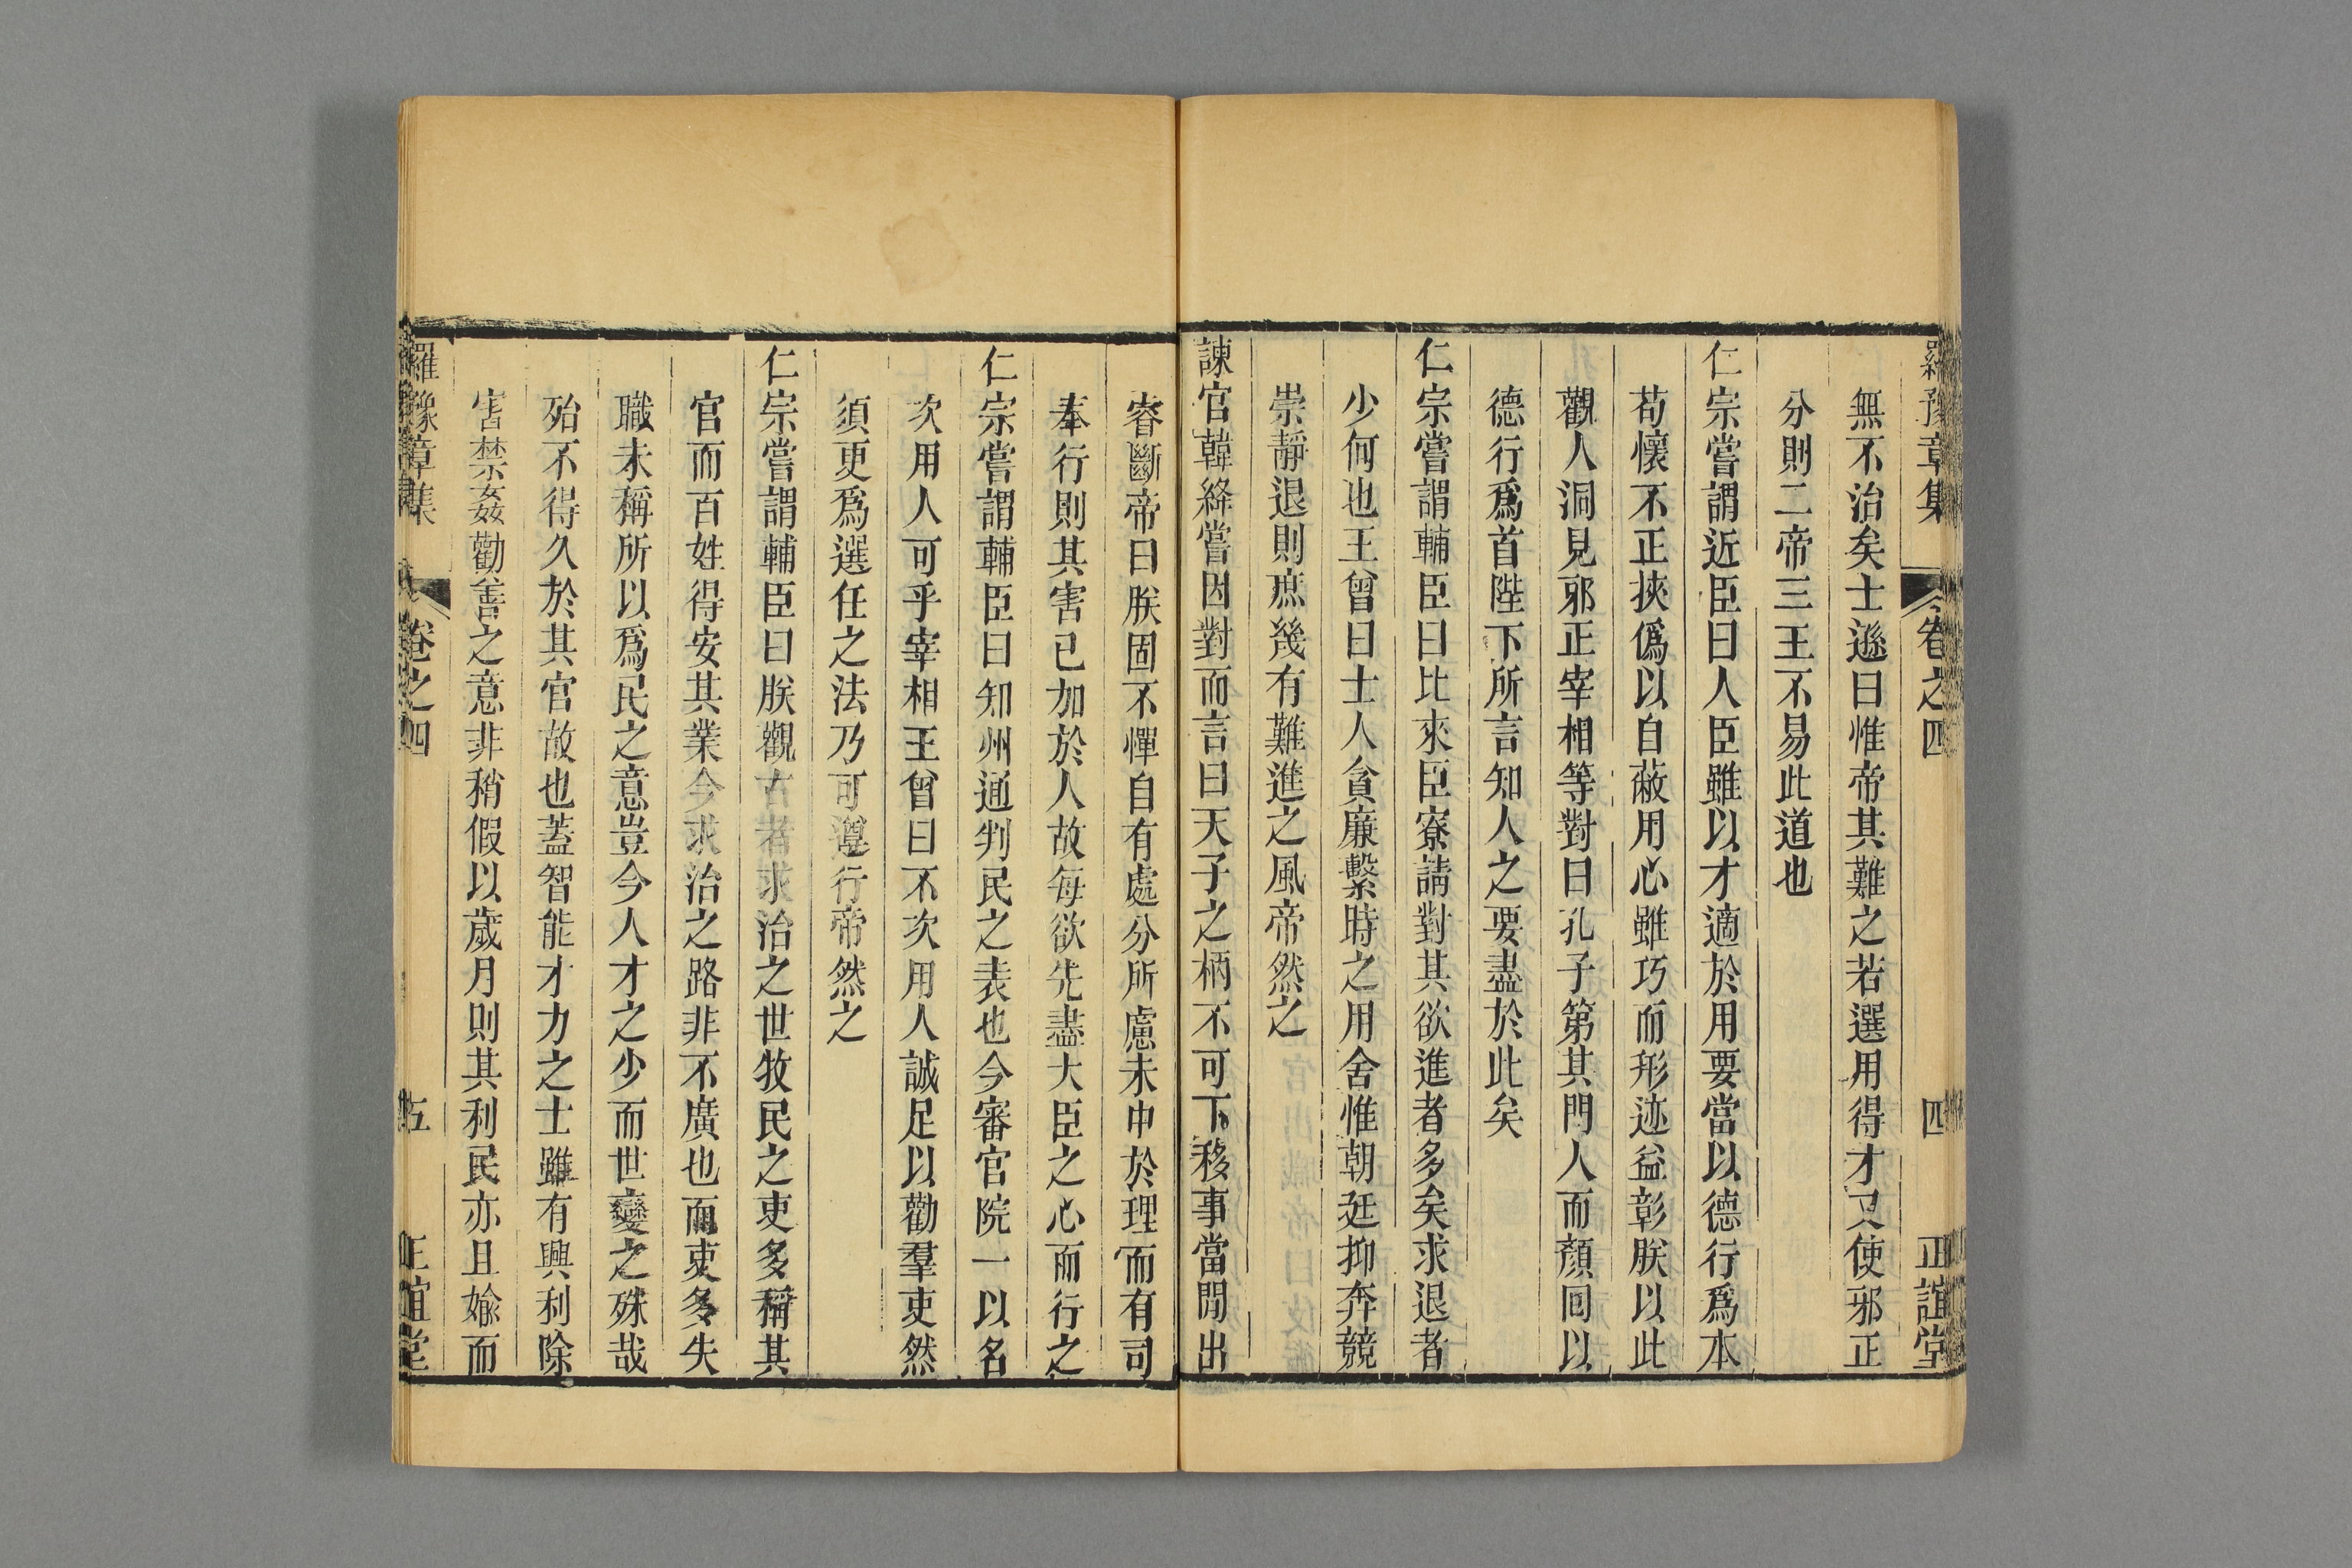 羅豫章集 卷之四 四 正誼堂
無不治矣士遜曰惟帝其難之若選用得才又使邪正
分則二帝三王不易此道也
仁宗嘗謂近臣曰人臣雖以才適於用要當以德行爲本
苟懷不正挾僞以自蔽用心雖巧而形迹益彰朕以此
觀人洞見邪正宰相等對曰孔子第其門人而顏回以
德行爲首陛下所言知人之要盡於此矣
仁宗嘗謂輔臣曰比來臣寮請對其欲進者多矣求退者
少何也王曾曰士人貪廉繫時之用舍惟朝廷抑奔競
崇靜退則庶幾有難進之風帝然之
諫官韓絳嘗因對而言曰天子之柄不可下移事當閒出
睿斷帝曰朕固不憚自有處分所慮未中於理而有司
奉行則其害已加於人故每欲先盡大臣之心而行之
仁宗嘗謂輔臣曰知州通判民之表也今審官院一以名
次用人可乎宰相王曾曰不次用人誠足以勸羣吏然
須更爲選任之法乃可遵行帝然之
仁宗嘗謂輔臣曰朕觀古者求治之世牧民之吏多稱其
官而百姓得安其業今求治之路非不廣也而吏多失
職未稱所以爲民之意豈今人才之少而世變之殊哉
殆不得久於其官故也蓋智能才力之士雖有興利除
害禁姦勸善之意非稍假以歲月則其利民亦且媮而
羅豫章集 卷之四 五 正誼堂